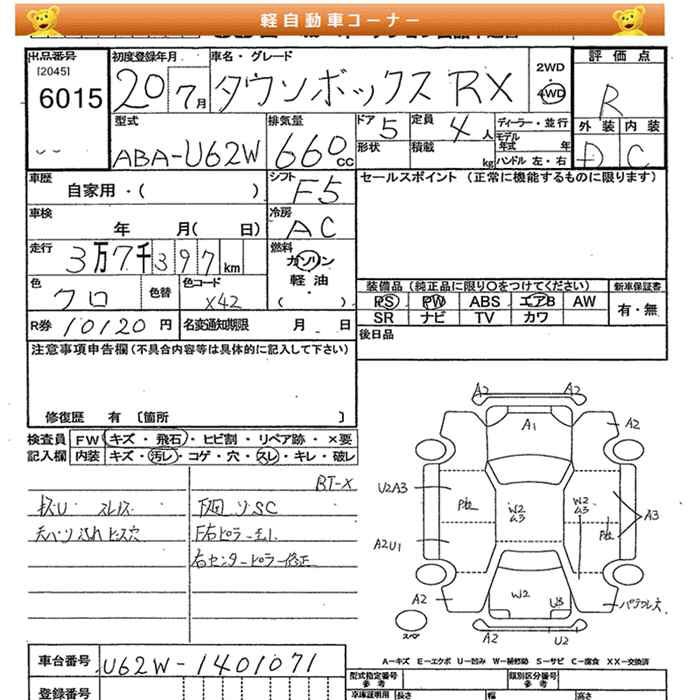 軽自動車コーナー
出品番号 初度登録年月 車名・グレード 評価点
[2045]
6015 20 7月 タウンボックス RX 2WD 4WD R
型式 排気量 ドア 5 定員 4人 ディーラー・並行 外装 内装
ABA-U62W 660cc 形状 積載 kg モデル年式 年 D C
ハンドル 左・右
車歴 シフト セールスポイント (正常に機能するものに限ります)
自家用・( ) F5
車検 冷房
年 月( 日) AC
走行 燃料
3万7千397km ガソリン
軽油
( )
色 色替 色コード 装備品 (純正品に限り○をつけてください) 新車保証書
クロ X42 PS PW ABS エアB AW 有・無
SR ナビ TV カワ
R券 10120円 名変通知期限 月 日 後日品
注意事項申告欄(不具合内容等は具体的に記入して下さい)
修復歴 有 〔箇所 〕
検査員 FW キズ・飛石・ヒビ割・リペア跡・×要
記入欄 内装 キズ・汚レ・コゲ・穴・スレ・キレ・破レ
BT-X
天バリ汚れ ビス穴
右センターピラー修正
A2 A2
A1
A2 A2
U2A3
W2
A3
W2
A3
A3
A2U1
A2 W2 U3
スペア
A2 U2
車台番号 U62W-1401071
A-キズ E-エクボ U-凹み W-補修跡 S-サビ C-腐食 XX-交換済
登録番号
型式指定番号 参考 類別区分番号 参考
車庫証明用 長さ 幅 高さ